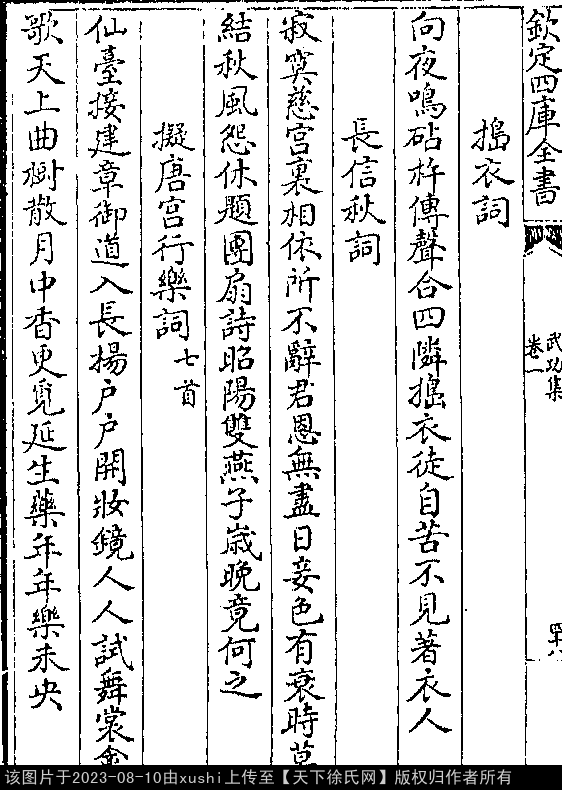 欽定四庫全書
武功集
卷一
擣衣詞
向夜鳴砧杵傳聲合四隣搗衣徒自苦不見著衣人
長信秋詞
寂寞慈宮裏相依所不辭君恩無盡日妾色有衰時莫
結秋風怨休題團扇詩昭陽雙燕子歲晚竟何之
擬唐宮行樂詞七首
仙臺接建章御道入長揚户户開妝鏡人人試舞裳金
歌天上曲樹散月中香更覓延生藥年年樂未央
该图片于2023-08-10由xushi上传至【天下徐氏网】版权归作者所有